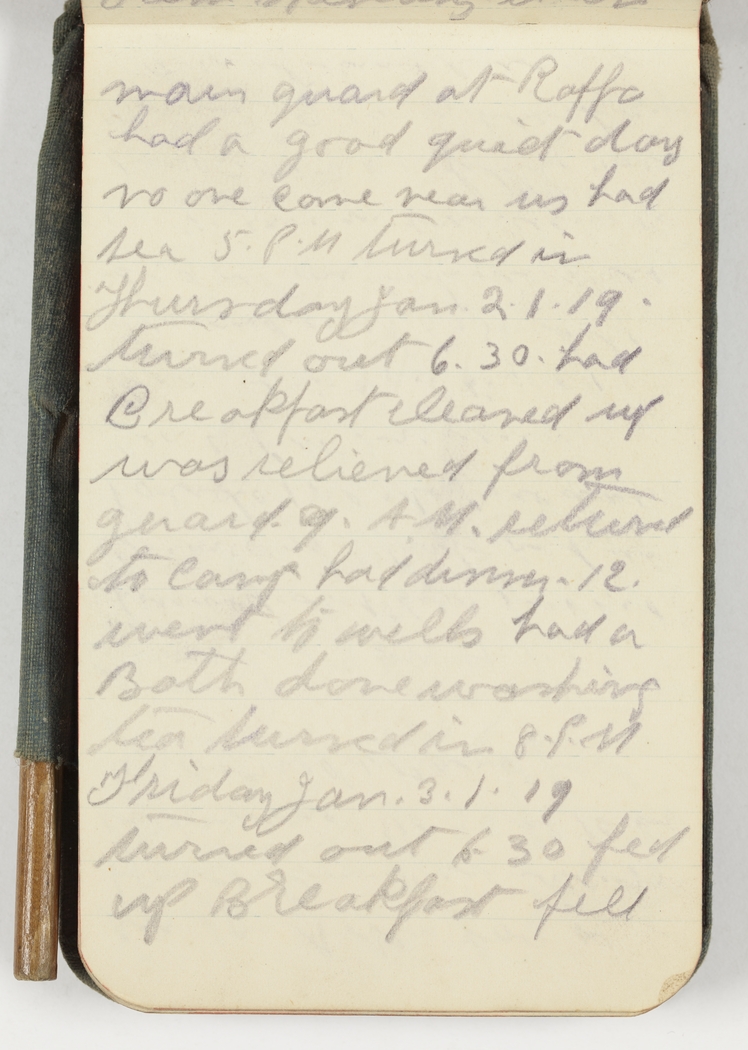 main guard at Raffa
had a good quiet day
no one come near us had
tea 5. P.M turned in
Thursday Jan. 2.1.19.
turned out 6.30. had
Breakfast cleaned up
was relieved from
guard. 9. A.M. returned
to camp had dinner. 12.
went to wells had a
Bath done washing
tea turned in 8.P.M
Friday Jan. 3.1.19
turned out 6.30 fed
up Breakfast fell